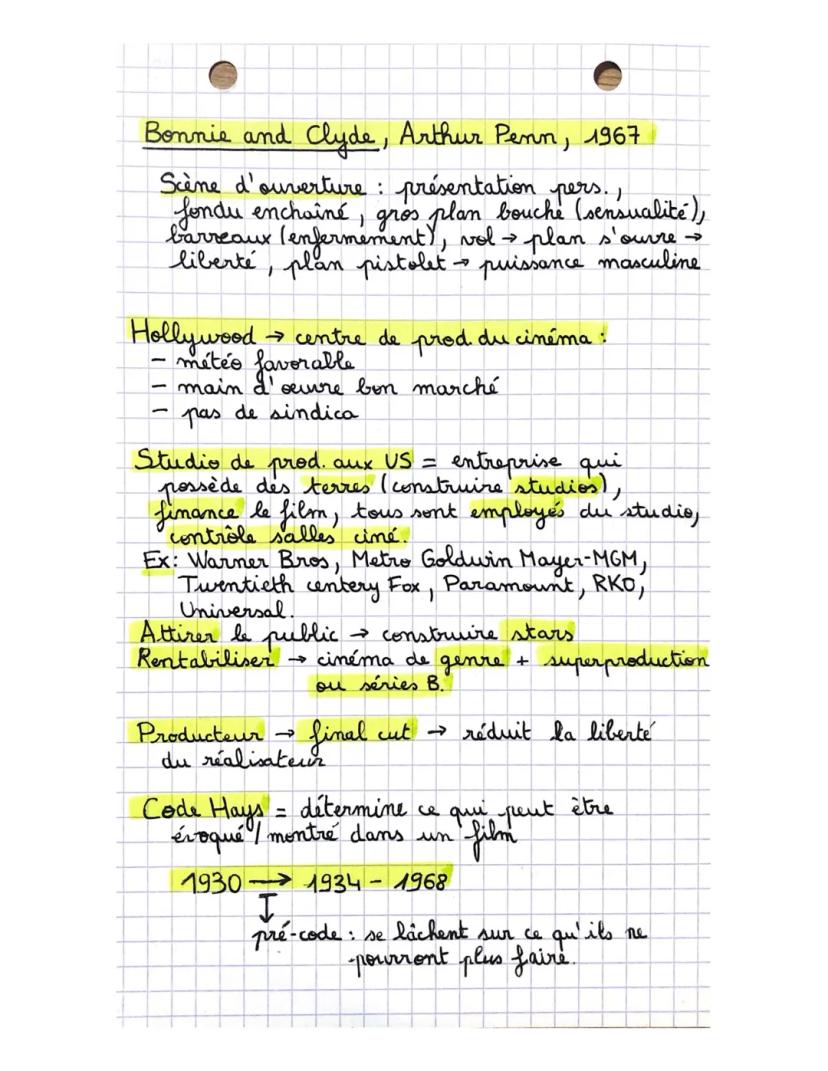 Bonnie and Clyde, Arthur Penn, 1967
Scène d'ouverture : présentation pers.,
fondu enchainé, gros plan bouche (sensualité),
barreaux (enfermement), vol → plan s'ouvre →
liberté, plan pistolet → puissance masculine
Hollywood → centre de prod. du cinéma :
- météo favorable
- main d'œuvre bon marché
- pas de sindica
Studio de prod. aux US = entreprise qui
possède des terres (construire studios),
finance le film, tous sont employés du studio,
contrôle salles ciné.
Ex: Warner Bros, Metro Goldwin Mayer-MGM,
Twentieth centery Fox, Paramount, RKO,
Universal.
Attirer le public → construire stars
Rentabiliser → cinéma de genre + superproduction
ou séries B.
Producteur → final cut → réduit la liberté
du réalisateur
Code Hays = détermine ce qui peut être
évoqué / montré dans un film
1930 → 1934 - 1968
pré-code : se lâchent sur ce qu'ils ne
pourront plus faire.